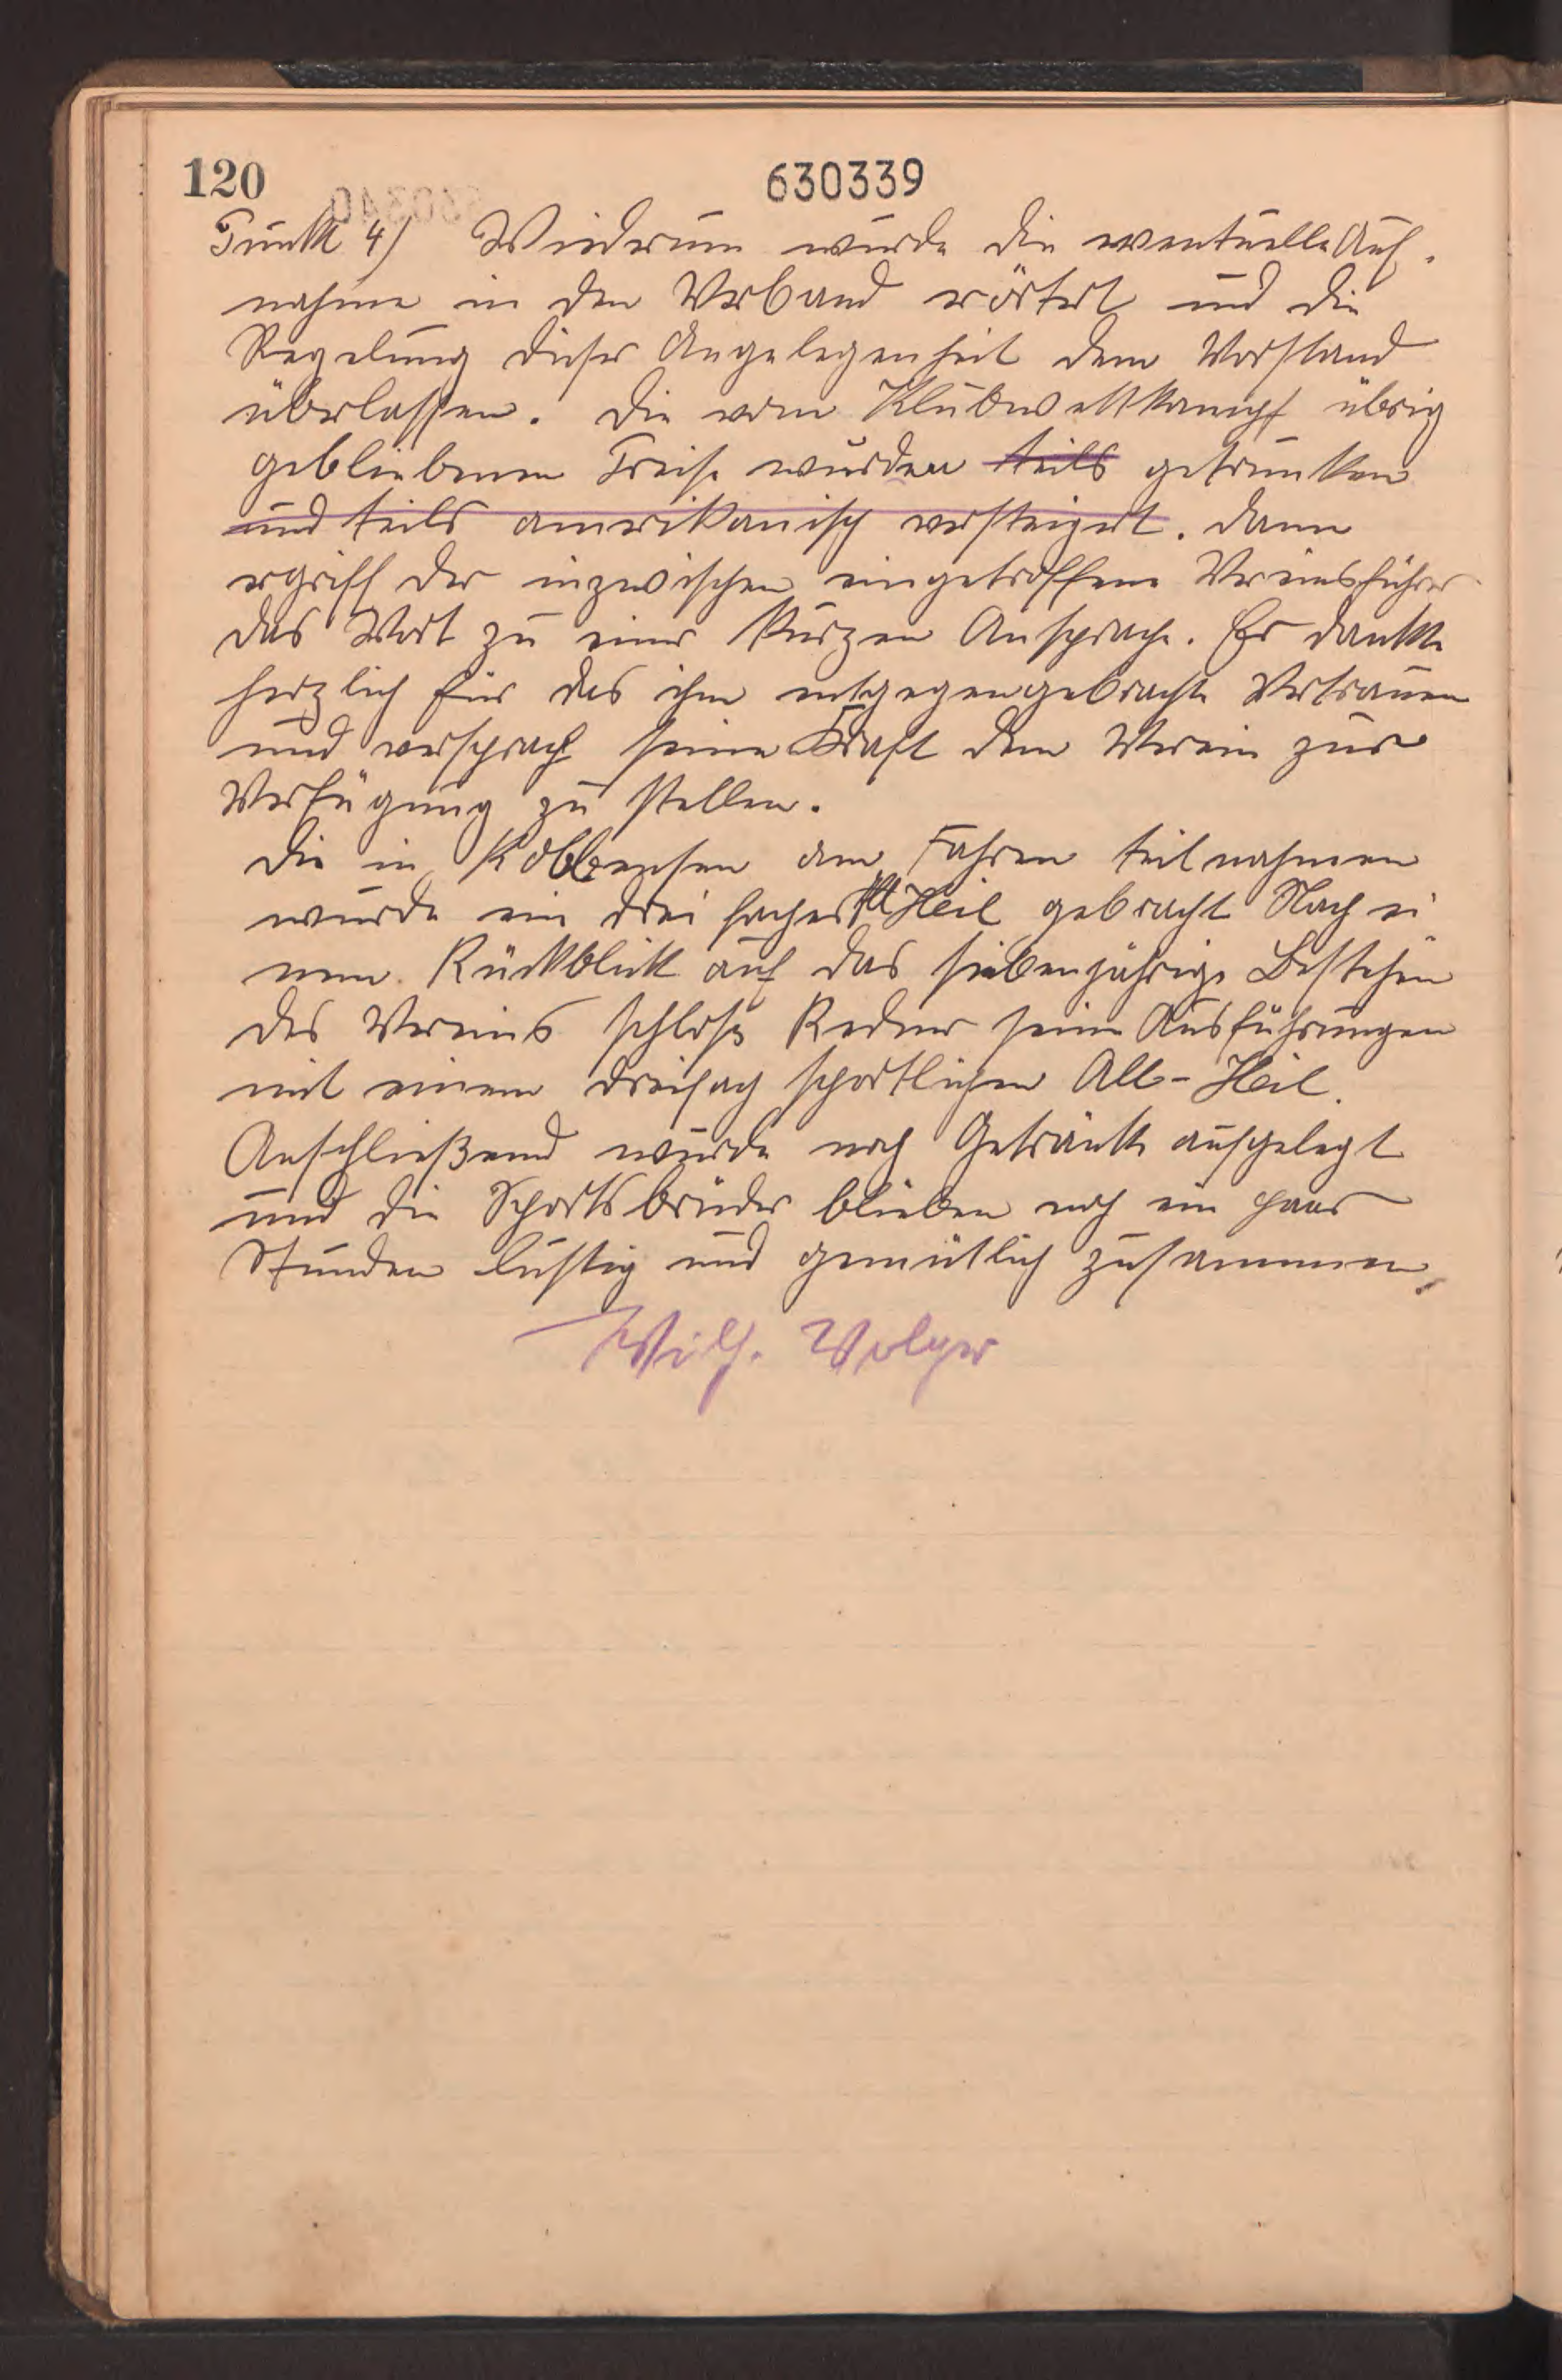 120
630339
Punkt 4) Wiederum wurde die eventuelle Auf-
nahme in den Verband erörtert und die
Regelung dieser Angelegenheit dem Vorstand
überlassen. Die vom Klubwettkampf übrig
gebliebenen Preise wurden teils getrunken
und teils amerikanisch versteigert. Dann
ergriff der inzwischen eingetroffene Vereinsführer
das Wort zu einer kurzen Ansprache. Er dankte
herzlich für das ihm entgegengebrachte Vertrauen
und versprach seine Kraft dem Verein zur
Verfügung zu stellen.
Die in Kobbensen am Fahren teilnahmen
wurde ein dreifaches All Heil gebracht Nach ei
nem Rückblick auf das siebenjährige Bestehen
des Vereins schloß Redner seine Ausführungen
mit einem dreifach sportlichen All-Heil.
Anschließend wurde noch Getränke aufgelegt
und die Sportsbrüder blieben noch ein paar
Stunden lustig und gemütlich zusammen.
Wilh. Volger